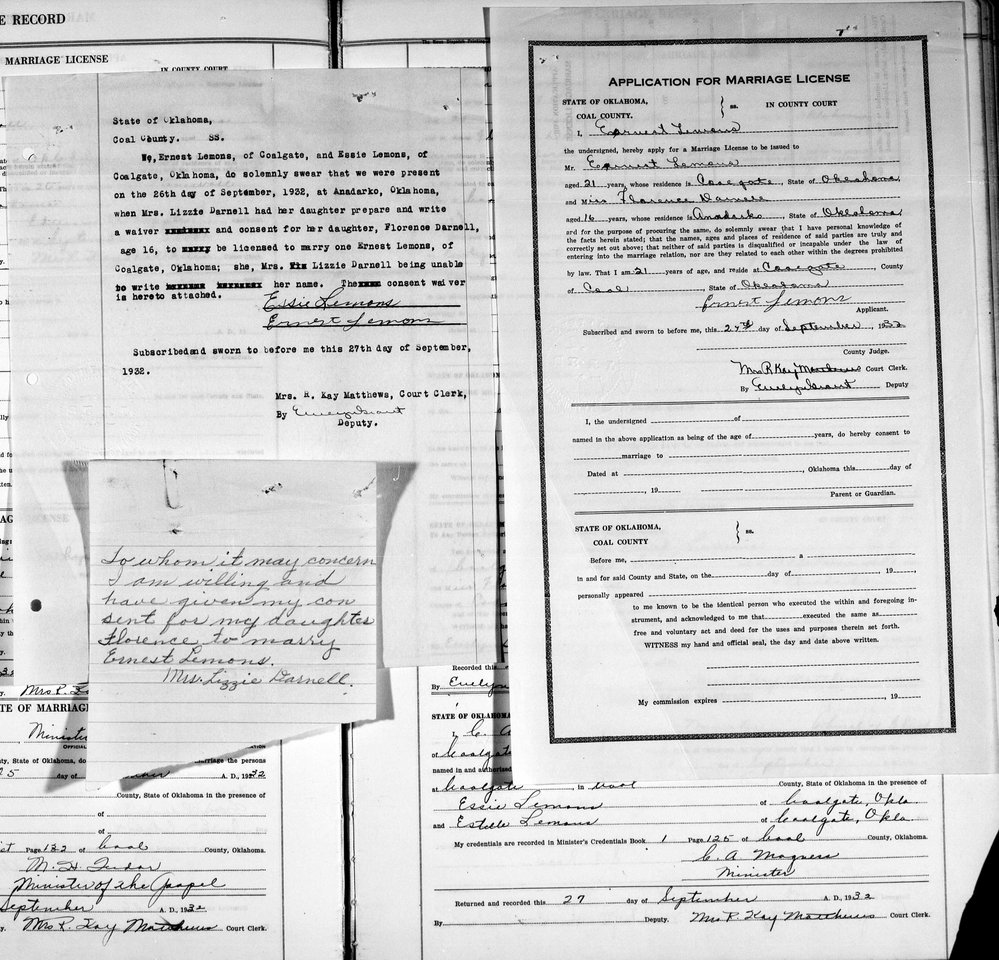 E RECORD
MARRIAGE LICENSE
IN COUNTY COURT
State of Oklahoma,
Coal County. SS.
We, Ernest Lemons, of Coalgate, and Essie Lemons, of
Coalgate, Oklahoma, do solemnly swear that we were present
on the 26th day of September, 1932, at Anadarko, Oklahoma,
when Mrs. Lizzie Darnell had her daughter prepare and write
a waiver xxxxxxxx and consent for her daughter, Florence Darnell,
age 16, to xxxxy be licensed to marry one Ernest Lemons, of
Coalgate, Oklahoma; she, Mrs. Lizzie Darnell being unable
to write xxxxxxx xxxxxxxx her name. The consent waiver
is hereto attached.
Essie Lemons
Ernest Lemons
Subscribedand sworn to before me this 27th day of September,
1932.
Mrs. R. Kay Matthews, Court Clerk,
By Evelyn Grant
Deputy.
To whom it may concern
I am willing and
have given my con
sent for my daughter
Florence to marry
Ernest Lemons.
Mrs. Lizzie Darnell.
APPLICATION FOR MARRIAGE LICENSE
STATE OF OKLAHOMA, } ss. IN COUNTY COURT
COAL COUNTY.
I, Earnest Lemons
the undersigned, hereby apply for a Marriage License to be issued to
Mr. Earnest Lemons
aged 21 years, whose residence is Coalgate, State of Oklahoma
and Miss Florence Darnell
aged 16 years, whose residence is Anadarko, State of Oklahoma
and for the purpose of procuring the same, do solemnly swear that I have personal knowledge of
the facts herein stated; that the names, ages and places of residence of said parties are truly and
correctly set out above; that neither of said parties is disqualified or incapable under the law of
entering into the marriage relation, nor are they related to each other within the degrees prohibited
by law. That I am 21 years of age, and reside at Coalgate, County
of Coal, State of Oklahoma
Ernest Lemons
Applicant.
Subscribed and sworn to before me, this 27th day of September, 1932
County Judge.
Mrs R Kay Matthews Court Clerk.
By Evelyn Grant Deputy
I, the undersigned of
named in the above application as being of the age of years, do hereby consent to
marriage to
Dated at , Oklahoma this day of
, 19
Parent or Guardian.
STATE OF OKLAHOMA, } ss.
COAL COUNTY
Before me, a
in and for said County and State, on the day of 19 ,
personally appeared
to me known to be the identical person who executed the within and foregoing in-
strument, and acknowledged to me that executed the same as
free and voluntary act and deed for the uses and purposes therein set forth.
WITNESS my hand and official seal, the day and date above written.
My commission expires , 19
Mrs R. Kay
TE OF MARRIAGE
Minister
OFFICIAL
State of Oklahoma, do
marriage the persons
25 day of A. D., 1932
County, State of Oklahoma in the presence of
of
of
Page 132 of Coal County, Oklahoma.
M. H. Tudor
Minister of the Gospel
September A. D., 1932
Mrs R. Kay Matthews Court Clerk.
Recorded this
By Evelyn
STATE OF OKLAHOMA
I, C. A
of Coalgate
named in and authorized
at Coalgate, in Coal
Essie Lemons of Coalgate, Okla.
and Estelle Lemons of Coalgate, Okla.
My credentials are recorded in Minister's Credentials Book 1 Page 125 of Coal County, Oklahoma.
C. A Magness
Minister
Returned and recorded this 27 day of September A. D., 1932
By Deputy. Mrs R Kay Matthews Court Clerk.